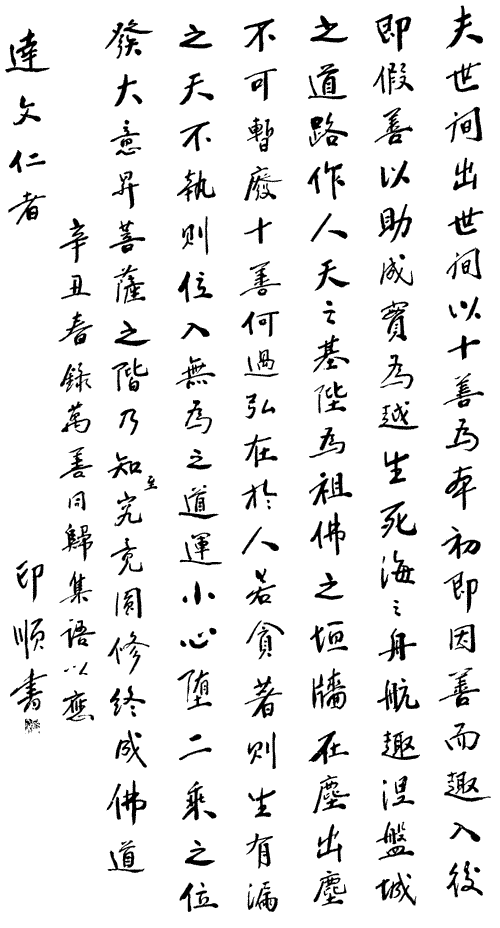 夫世间出世间以十善為本初即因善而趣入後
即假善以助成實為越生死海之舟航趣涅盤城
之道路作人天之基陛為祖佛之垣牆在塵出塵
不可暫廢十善何過弘在於人若貪著則生有漏
之天不執則位入無為之道運小心墮二乘之位
發大意昇菩薩之階乃至知究竟圓修終成佛道
辛丑春錄萬善同歸集語以應
達文仁者
印順書